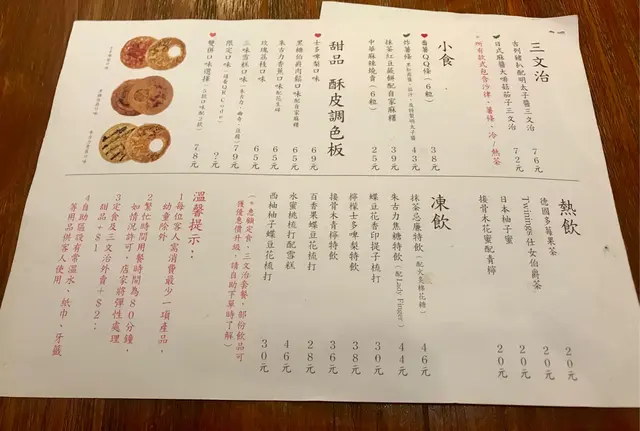 三文治
吉列豬扒配明太子醬三文治 76元
日式麻醬大啡菇茄子三文治 72元
*所有款式包含沙律、薯條、冷/熱茶
小食
番薯QQ條(6條) 38元
炸薯條 43元
抹茶紅豆蕨餅配自家麻糬 39元
中華麻辣燒賣(6粒) 25元
甜品 酥皮調色板
士多啤梨口味 69元
黑糖伯爵肉鬆口味配自家麻糬 65元
朱古力香蕉口味配花生碎 65元
玫瑰荔枝口味 65元
三味雪糕口味 79元
限定口味(請看QR Code) ?元
雙併口味選擇 78元
熱飲
德國多莓果茶 20元
Twinings仕女伯爵茶 20元
日本柚子蜜 20元
接骨木花蜜配青檸 20元
凍飲
抹茶忌廉特飲(配火炙棉花糖) 46元
朱古力焦糖特飲(配Lady Finger) 44元
蝶豆花香印提子梳打 30元
檸檬士多啤梨特飲 38元
接骨木青檸特飲 36元
百香果蝶豆花梳打 28元
水蜜桃梳打配雪糕 46元
西柚柚子蝶豆花梳打 30元
(*惠顧定食、三文治套餐，部份飲品可
獲優惠價升級，請自助下單時了解)
溫馨提示：
1每位客人需消費最少一項產品，
幼童除外
2繁忙時間用餐時間為80分鐘，
如情況許可，店家將彈性處理
3定食及三文治外賣+$2；
甜品+$1
4自助區設有常溫水、紙巾、牙籤
等用品供客人使用